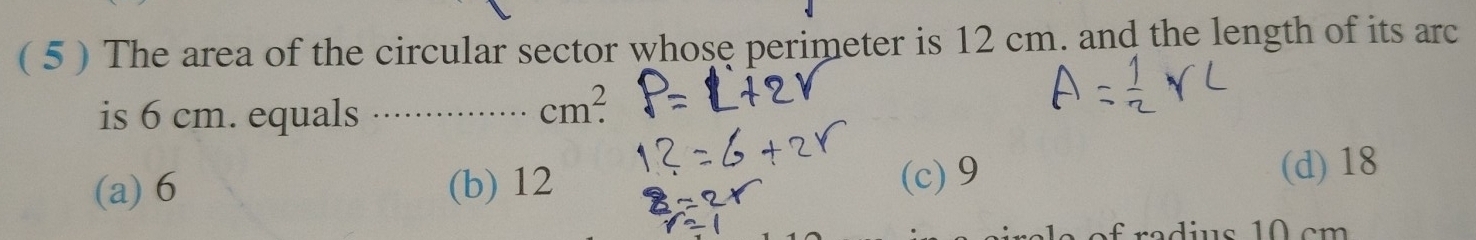 (5) The area of the circular sector whose perimeter is 12 cm. and the length of its arc
is 6 cm. equals ............... cm².
P = L + 2r
A = 1/2 r L
12 = 6 + 2r
(a) 6 (b) 12 (c) 9 (d) 18
= 2r
r = 1
circle of radius 10 cm